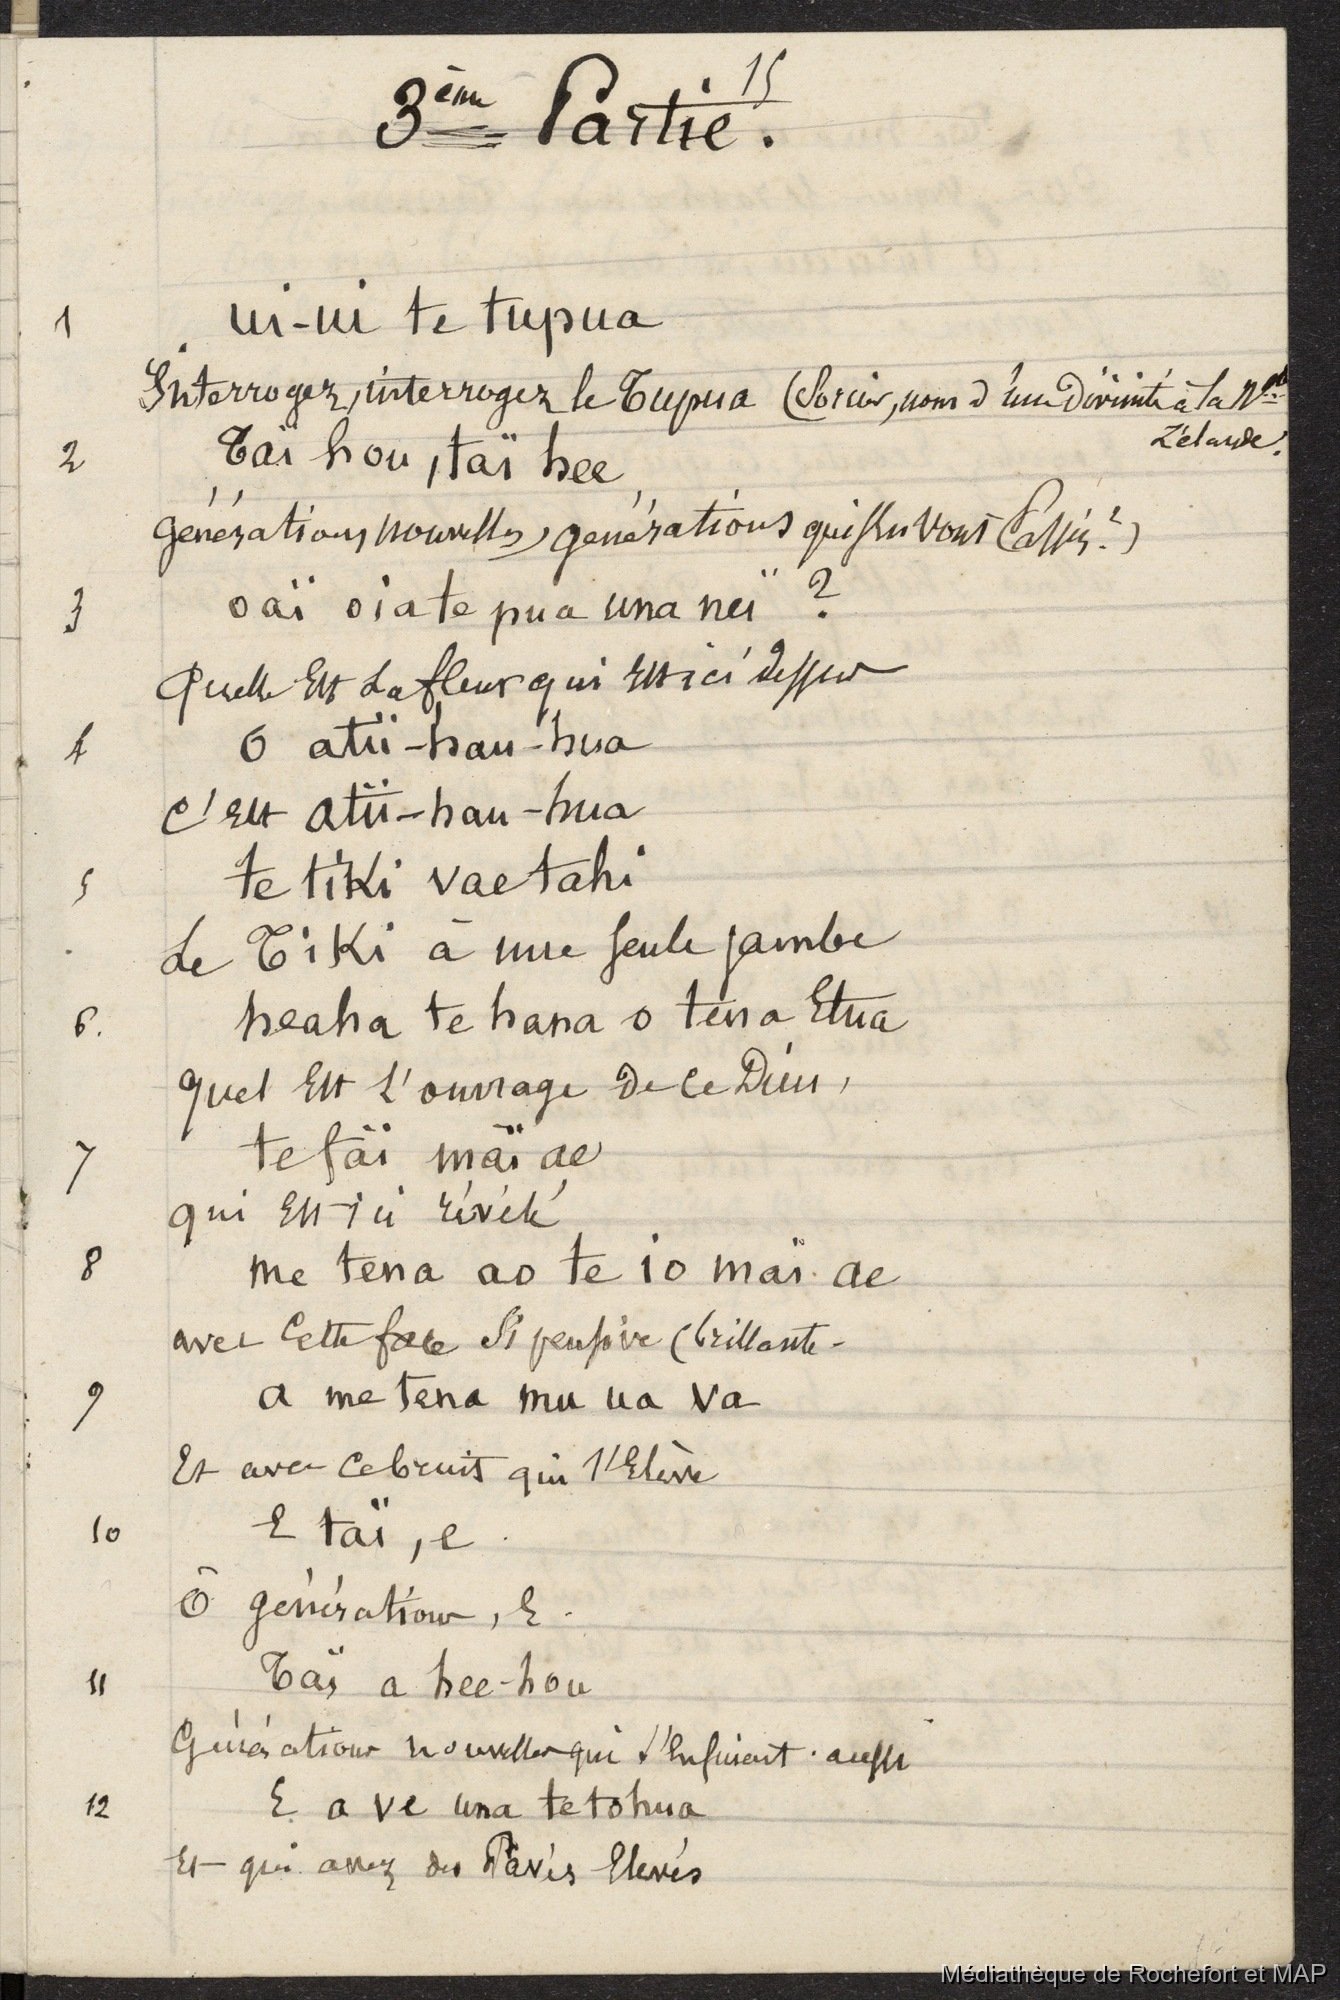 15
3ème Partie.
1 ui-ui te tupua
Interrogez, interrogez le Tupua (Sorcier, nom d'une Divinité à la Nlle
Zélande.
2 Taï hou, taï hee
générations nouvelles, générations qui s'en vont (Passées?)
3 oaï oia te pua una neï ?
Quelle Est La fleur qui Est ici dessus
4 O atii-hau-hua
C'Est atii-hau-hua
5 te tiki vae tahi
Le Tiki à une seule jambe
6. heaha te hana o tena Etua
quel Est L'ouvrage de ce Dieu,
7 te faï maï ae
qui Est ici révélé
8 me tena ao te io maï ae
avec Cette face Si pensive (brillante-
9 a me tena mu ua va
Et avec ce bruit qui s'Elève
10 E taï, e.
Ô générations, E.
11 Taï a hee-hou
Générations nouvelles qui s'Enfuient aussi
12 E a ve una te tohua
Et qui avez des Pavés Elevés
Médiathèque de Rochefort et MAP